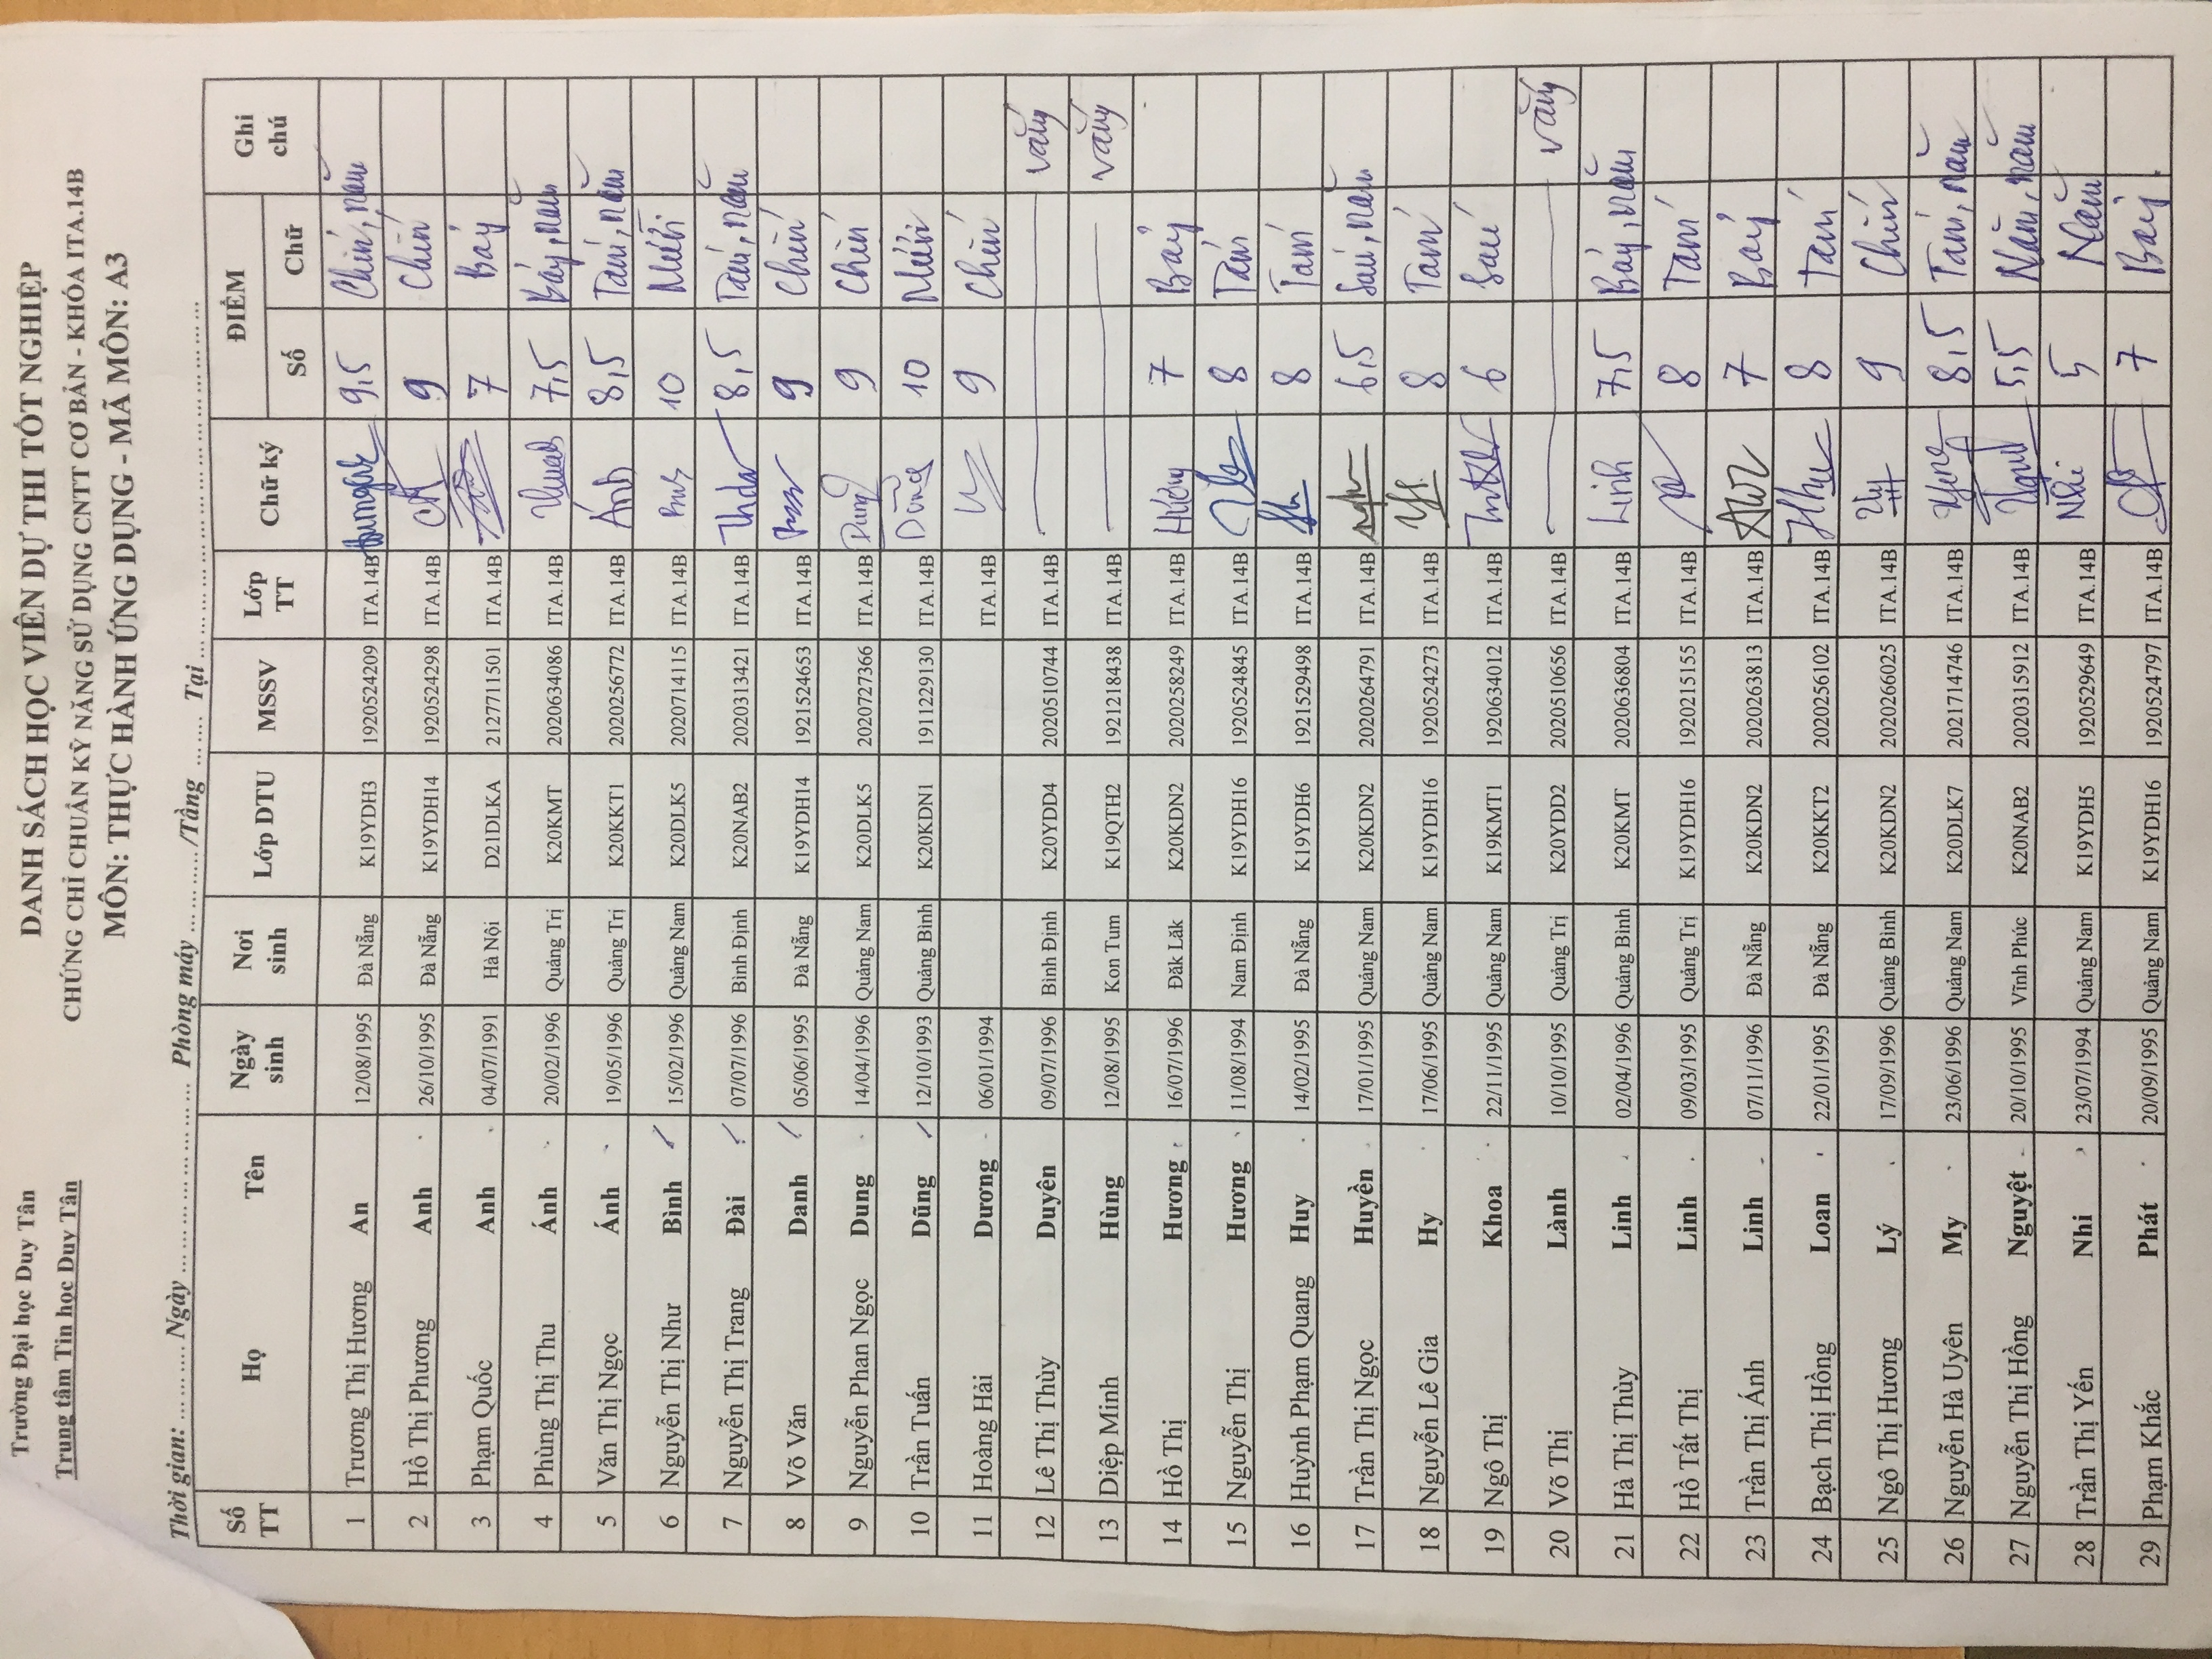 Trường Đại học Duy Tân
Trung tâm Tin học Duy Tân
DANH SÁCH HỌC VIÊN DỰ THI TỐT NGHIỆP
CHỨNG CHỈ CHUẨN KỸ NĂNG SỬ DỤNG CNTT CƠ BẢN - KHÓA ITA.14B
MÔN: THỰC HÀNH ỨNG DỤNG - MÃ MÔN: A3
Thời gian: ............. Ngày ........................ Phòng máy ............/Tầng ....... Tại ........................
Số TT Họ Tên Ngày sinh Nơi sinh Lớp DTU MSSV Lớp TT Chữ ký ĐIỂM Số Chữ Ghi chú
1 Trương Thị Hương An 12/08/1995 Đà Nẵng K19YDH3 1920524209 ITA.14B 9,5 Chín, năm
2 Hồ Thị Phương Anh 26/10/1995 Đà Nẵng K19YDH14 1920524298 ITA.14B 9 Chín
3 Phạm Quốc Anh 04/07/1991 Hà Nội D21DLKA 2127711501 ITA.14B 7 Bảy
4 Phùng Thị Thu Ánh 20/02/1996 Quảng Trị K20KMT 2020634086 ITA.14B 7,5 Bảy, năm
5 Văn Thị Ngọc Ánh 19/05/1996 Quảng Trị K20KKT1 2020256772 ITA.14B Ánh 8,5 Tám, năm
6 Nguyễn Thị Như Bình 15/02/1996 Quảng Nam K20DLK5 2020714115 ITA.14B 10 Mười
7 Nguyễn Thị Trang Đài 07/07/1996 Bình Định K20NAB2 2020313421 ITA.14B 8,5 Tám, năm
8 Võ Văn Danh 05/06/1995 Đà Nẵng K19YDH14 1921524653 ITA.14B 9 Chín
9 Nguyễn Phan Ngọc Dung 14/04/1996 Quảng Nam K20DLK5 2020727366 ITA.14B Dung 9 Chín
10 Trần Tuấn Dũng 12/10/1993 Quảng Bình K20KDN1 1911229130 ITA.14B Dũng 10 Mười
11 Hoàng Hải Dương 06/01/1994 ITA.14B 9 Chín
12 Lê Thị Thùy Duyên 09/07/1996 Bình Định K20YDD4 2020510744 ITA.14B vắng
13 Diệp Minh Hùng 12/08/1995 Kon Tum K19QTH2 1921218438 ITA.14B vắng
14 Hồ Thị Hương 16/07/1996 Đăk Lăk K20KDN2 2020258249 ITA.14B Hương 7 Bảy
15 Nguyễn Thị Hương 11/08/1994 Nam Định K19YDH16 1920524845 ITA.14B 8 Tám
16 Huỳnh Phạm Quang Huy 14/02/1995 Đà Nẵng K19YDH6 1921529498 ITA.14B 8 Tám
17 Trần Thị Ngọc Huyền 17/01/1995 Quảng Nam K20KDN2 2020264791 ITA.14B 6,5 Sáu, năm
18 Nguyễn Lê Gia Hy 17/06/1995 Quảng Nam K19YDH16 1920524273 ITA.14B 8 Tám
19 Ngô Thị Khoa 22/11/1995 Quảng Nam K19KMT1 1920634012 ITA.14B 6 Sáu
20 Võ Thị Lành 10/10/1995 Quảng Trị K20YDD2 2020510656 ITA.14B vắng
21 Hà Thị Thùy Linh 02/04/1996 Quảng Bình K20KMT 2020636804 ITA.14B Linh 7,5 Bảy, năm
22 Hồ Tất Thị Linh 09/03/1995 Quảng Trị K19YDH16 1920215155 ITA.14B 8 Tám
23 Trần Thị Ánh Linh 07/11/1996 Đà Nẵng K20KDN2 2020263813 ITA.14B 7 Bảy
24 Bạch Thị Hồng Loan 22/01/1995 Đà Nẵng K20KKT2 2020256102 ITA.14B 8 Tám
25 Ngô Thị Hương Lý 17/09/1996 Quảng Bình K20KDN2 2020266025 ITA.14B 9 Chín
26 Nguyễn Hà Uyên My 23/06/1996 Quảng Nam K20DLK7 2021714746 ITA.14B 8,5 Tám, năm
27 Nguyễn Thị Hồng Nguyệt 20/10/1995 Vĩnh Phúc K20NAB2 2020315912 ITA.14B 5,5 Năm, năm
28 Trần Thị Yến Nhi 23/07/1994 Quảng Nam K19YDH5 1920529649 ITA.14B Nhi 5 Năm
29 Phạm Khắc Phát 20/09/1995 Quảng Nam K19YDH16 1920524797 ITA.14B 7 Bảy